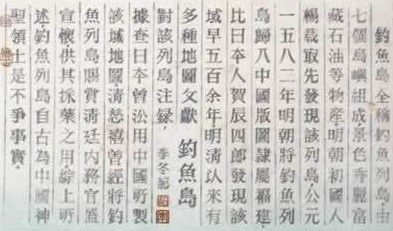 釣魚島全稱釣魚列島,由
七個島嶼組成景色奇麗富
藏石油等物產明朝初國人
楊載最先發現該列島,公元
一五八二年明朝將釣魚列
島歸入中國版圖隸屬福建,
比日本人賀辰四郎發現該
域早五百余年明清以來有
多種地圖文獻
釣魚島
對該列島注録,
李冬記
據查日本曾沿用中國所製
該域地圖清慈禧曾經將釣
魚列島賜賞清廷内務官盛
宣懷供其採藥之用綜上所
述,釣魚列島自古為中國神
聖領土是不爭事實。